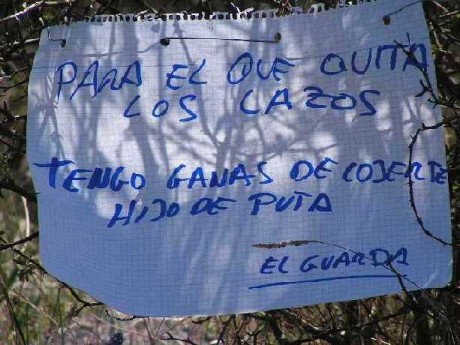 PARA EL QUE QUITA
LOS LAZOS
TENGO GANAS DE COJERTE
HIJO DE PUTA
EL GUARDA